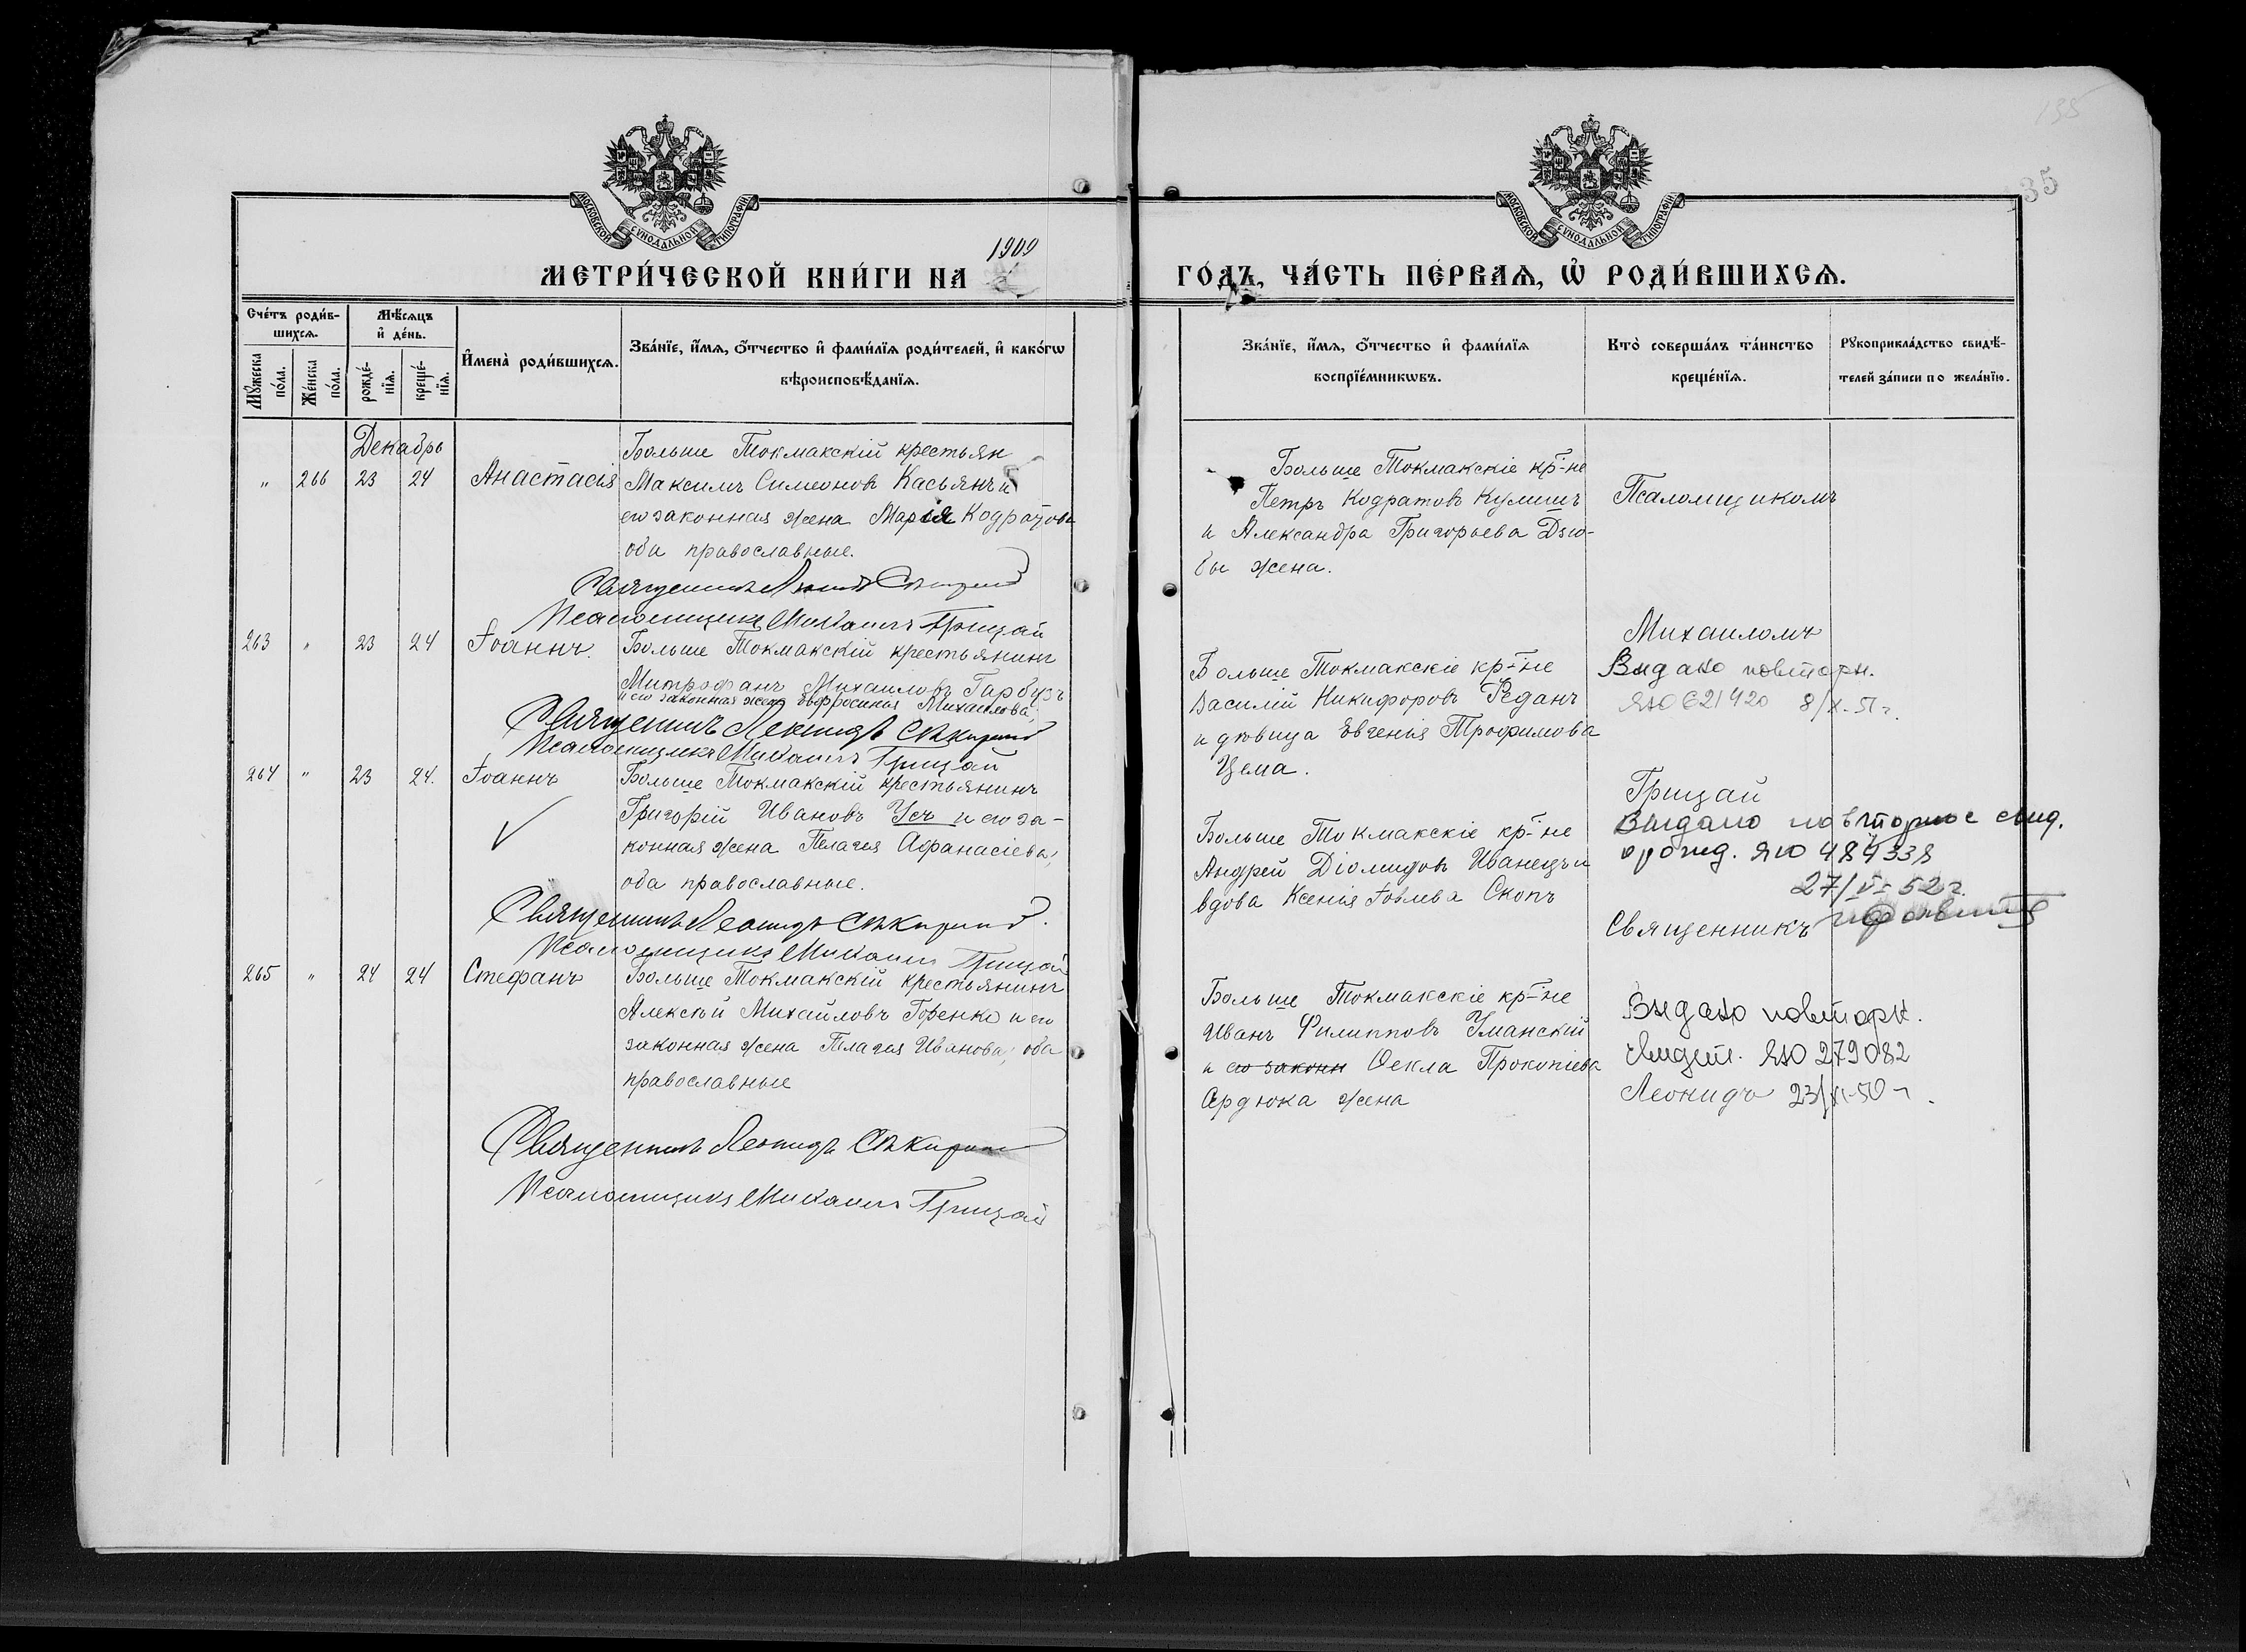 135
35
МОСКОВСКОЙ СУНОДАЛЬНОЙ ТИПОГРАФІИ
МОСКОВСКОЙ СУНОДАЛЬНОЙ ТИПОГРАФІИ
МЕТРИ́ЧЕСКОЙ КНИ́ГИ НА 1909
ГО́ДЪ, ЧА́СТЬ ПЕ́РВАѦ, Ѽ РОДИ́ВШИХСѦ.
Сче́тъ роди́вшихсѧ.
Мꙋ́жеска по́ла.
Же́нска по́ла.
Мѣ́сѧцъ и҆ де́нь.
рожде́нїѧ.
креще́нїѧ.
И҆мена̀ роди́вшихсѧ.
Зва́нїе, и҆́мѧ, ѻ҆́тчество и҆ фами́лїѧ роди́телей, и҆ како́гѡ
вѣроисповѣ́данїѧ.
Зва́нїе, и҆́мѧ, ѻ҆́тчество и҆ фами́лїѧ
воспрїе́мникѡвъ.
Кто̀ соверша́лъ та́инство
креще́нїѧ.
Рꙋкоприкла́дство свидѣ́-
телей за́писи по жела́нїю.
Декабрь
" 266 23 24 Анастасія
Больше Токмакскій крестьян
Максимъ Симеоновъ Касьянъ и
его законная жена Марія Кодратова
оба православные.
Священникъ Леонидъ Сѣкиринъ
Псаломщикъ Михаилъ Грицай
Больше Токмакскіе кр-не
Петръ Кодратовъ Кулишъ
и Александра Григорьева Дзю-
бы жена.
Псаломщикомъ
263 " 23 24 Іоаннъ.
Больше Токмакскій крестьянинъ
Митрофанъ Михаиловъ Гарбузъ
и его законная жена Евфросинія Михаилова;
Священникъ Леонидъ Сѣкиринъ
Псаломщикъ Михаилъ Грицай
Больше Токмакскіе кр-не
Василій Никифоровъ Реданъ
и дѣвица Евгенія Трофимова
Цема.
Михаиломъ
Видано повторн.
ЯЮ 621420 8/X-51 г.
264 " 23 24. Іоаннъ
Больше Токмакскій крестьянинъ
Григорій Ивановъ Усъ и его за-
конная жена Пелагея Афанасіева,
оба православные.
Священникъ Леонидъ Сѣкиринъ.
Псаломщикъ Михаилъ Грицай
Больше Токмакскіе кр-не
Андрей Діомидовъ Иванецъ и
вдова Ксенія Іовлева Скопъ
Грицай
Выдано повторное свид.
о рожд. ЯЮ 484338
27/V-52 г.
Священникъ
265 " 24 24 Стефанъ
Больше Токмакскій крестьянинъ
Алексѣй Михайловъ Горенко и его
законная жена Пелагея Иванова, оба
православные
Священникъ Леонидъ Сѣкиринъ
Псаломщикъ Михаилъ Грицай
Больше Токмакскіе кр-не
Иванъ Филипповъ Уманскій
и его законн Ѳекла Прокопіева
Сердюка жена
Видано повторн.
свидет. ЯЮ 279082
Леонидъ 23/XI-50 г.